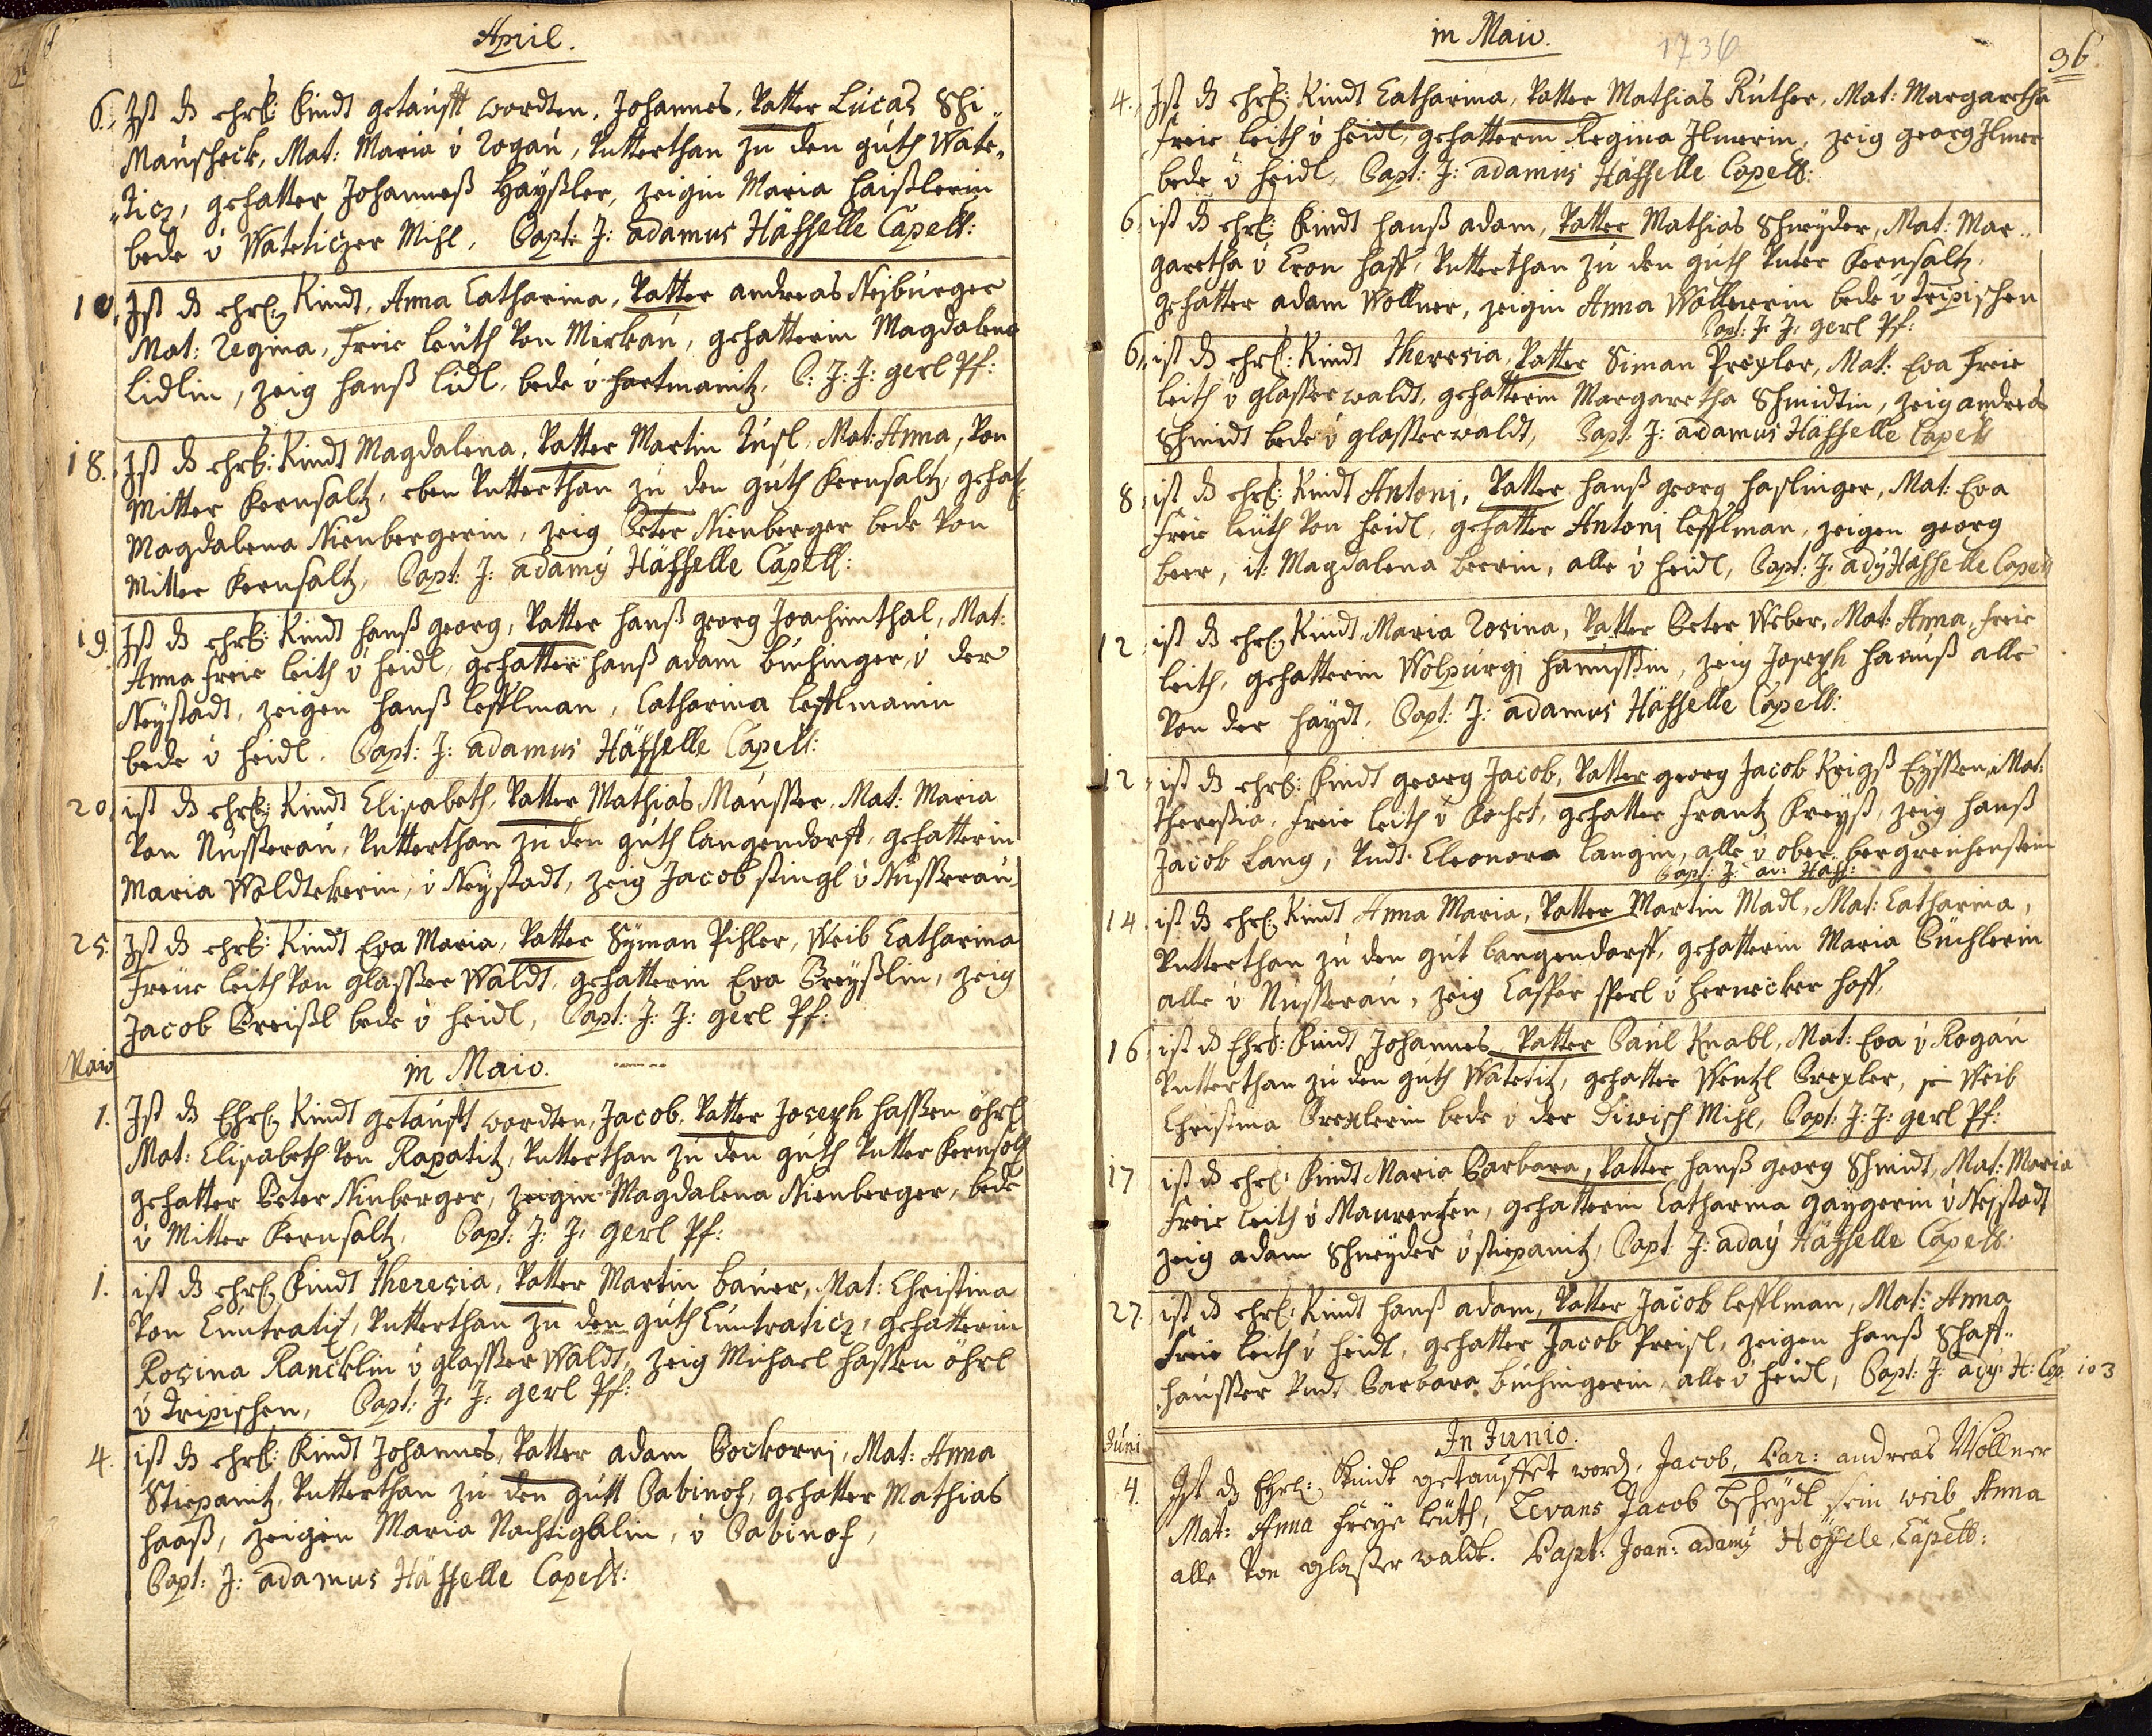 April.
6. Ist ds ehrl: Kindt getaufft wordten, Johannes, Vatter Lucas Schi„
Mauscheck, Mat: Maria v Rogau, Vntterthan zu den guth Wate„
„ticz, gefatter Johanneß Hayßler, zeigin Maria Haißlerin
bede v Wateticzer Mihl, Bapt: J: adamus Häffelle Capell:
10. Ist ds ehrl: Kindt, Anna Catharina, Vatter andreas Nejburger
Mat: Regina, Freie leuth von Mirkau, gefatterin Magdalena
Lidlin, zeig hanß lidl, bede v hartmanitz, B: J: J: gerl Pf:
18. Ist ds ehrl: Kindt Magdalena, Vatter Martin Tusl, Mat: Anna, von
Mitter Kernsaltz, eben Vntterthan zu den guth Kernsaltz, gefat:
Magdalena Nirnbergerin, zeig Peter Nirnberger bede von
Mitter Kernsaltz, Bapt: J: adamy Häffelle Capell:
19. Ist ds ehrl: Kindt hanß georg, Vatter hanß georg Joachimthal, Mat:
Anna freie leith v heidl, gefatter hanß adam buchinger, v der
Neystadt, zeigen hanß lefflman, Catharina lefflmanin
bede v heidl. Bapt: J: adamus Häffelle Capell:
20. ist ds ehrl: Kindt Elisabeth, Vatter Mathias Mausser, Mat: Maria
von Nusserau, Vntterthan zu den guth langendorff, gefatterin
Maria Woldtekerin, v Neystadt, zeig Jacob stingl v Nusserau,
25. Ist ds ehrl: Kindt Eva Maria, Vatter Syman Pihler, Weib Catharina
Freue leith von glasser Waldt, gefatterin Eva Preyßlin, zeig
Jacob Preißl bede v heidl, Bapt: J: J: gerl Pf:
Maio
in Maio.
1. Ist ds Ehrl: Kindt getaufft wordten, Jacob, Vatter Joseph hassen öhrl
Mat: Elisabeth von Rapatitz, Vntterthan zu den guth Vntter Kernsaltz
gefatter Peter Ninberger, zeigin Magdalena Nirnberger, bede
v Mitter Kernsaltz, Bapt: J: J: gerl Pf:
1. ist ds ehrl: Kindt theresia, Vatter Martin bauer, Mat: Christina
von Cuntratitz, Vntterthan zu den guth Cuntraticz, gefatterin
Rosina Rancklin v glasser Waldt, zeig Michael hassen öhrl
v tripischen, Bapt: J: J: gerl Pf:
4. ist ds ehrl: Kindt Johannes, Vatter adam Pockorrj, Mat: Anna
Stiepanitz, Vntterthan zu den gutt Babinof, gefatter Mathias
haaß, zeigen Maria Nachtigallin, v Babinof,
Bapt: J: adamus Häffelle Capell:
in Maio.
1736
36
4. Ist ds ehrl: Kindt Catharina, Vatter Mathias Ruther, Mat: Margaretha
freie leith v heidl, gefatterin Regina Ilmerin, zeig georg Ilmer
bede v heidl, Bapt: J: adamus Häffelle Capell:
6. ist ds ehrl: Kindt hanß adam, Vatter Mathias Schneyder, Mat: Mar„
garetha v Cron haff, Vntterthan zu den guth Vnter Kernsaltz,
gefatter adam Wollner, zeigin Anna Wollnerin bede v tripischen
Bapt: J: J: gerl Pf:
6. ist ds ehrl: Kindt theresia, Vatter Siman Prexler, Mat: Eva freie
leith v glasserwaldt, gefatterin Margaretha Schmidtin, zeig andreas
Schmidt bede v glasserwaldt, Bapt: J: adamus Häffelle Capell
8. ist ds ehrl: Kindt Antonj, Vatter hanß georg haslinger, Mat: Eva
freie leuth von heidl, gefatter Antonj lefflman, zeigen georg
beer, it: Magdalena beerin, alle v heidl, Bapt: J: ady Häffelle Capell
12. ist ds ehrl: Kindt Maria Rosina, Vatter Peter Weber, Mat: Anna, freie
leith, gefatterin Wolpurgj haunßin, zeig Joseph haanß alle
von der haydt, Bapt: J: adamus Häffelle Capell:
12. ist ds ehrl: Kindt georg Jacob, Vatter georg Jacob Krigß Eyssen, Mat:
theresia, freie leith v Kochet, gefatter Frantz Kreyß, zeig hanß
Jacob Lang, Vndt Eleonora langin, alle v ober bergreichenstein
Bapt: J: ad: Häff:
14. ist ds ehrl: Kindt Anna Maria, Vatter Martin Madl, Mat: Catharina,
Vntterthan zu den gut langendorff, gefatterin Maria Buchlerin
alle v Nusserau, zeig Casper sperl v hernecker hoff,
16. ist ds Ehrl: Kindt Johannes, Vatter Paul Knabl, Mat: Eva v Rogau
Vntterthan zu den guth Watetitz, gefatter Wentzl Prexler, sein Weib
Christina Prexlerin bede v der Diwisch Mihl, Bapt: J: J: gerl Pf:
17 ist ds ehrl: Kindt Maria Barbara, Vatter hanß georg Schmidt, Mat: Maria
freie leith v Maurentzen, gefatterin Catharina gaygerin v Nejstadt
zeig adam Schneyder v stiepanitz, Bapt J: aday Häffelle Capell:
27. ist ds ehrl: Kindt hanß adam, Vatter Jacob lefflman, Mat: Anna
freie leith v heidl, gefatter Jacob Preisl, zeigen hanß Schaff„
hausser Vndt Barbara buchingerin alle v heidl, Bapt: J: ady: H: Cap. 103
Juni
In Junio.
4. Ist ds Ehrl: Kindt getauffet word, Jacob, Par: andreas Wöllner
Mat: Anna freye leuth, Levans Jacob Bscheydl sein weib Anna
alle von glasserwaldt. Bapt: Joan: adamy Höffele, Capell: